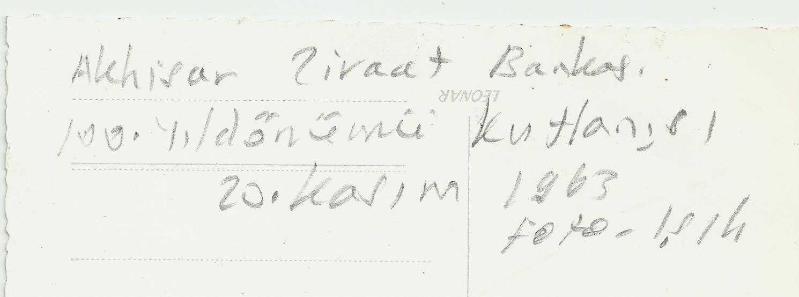 Akhisar Ziraat Bankas.
LEONAR
100. Yıldönümü kutlanışı
20. kasım 1963
Foto - Işık